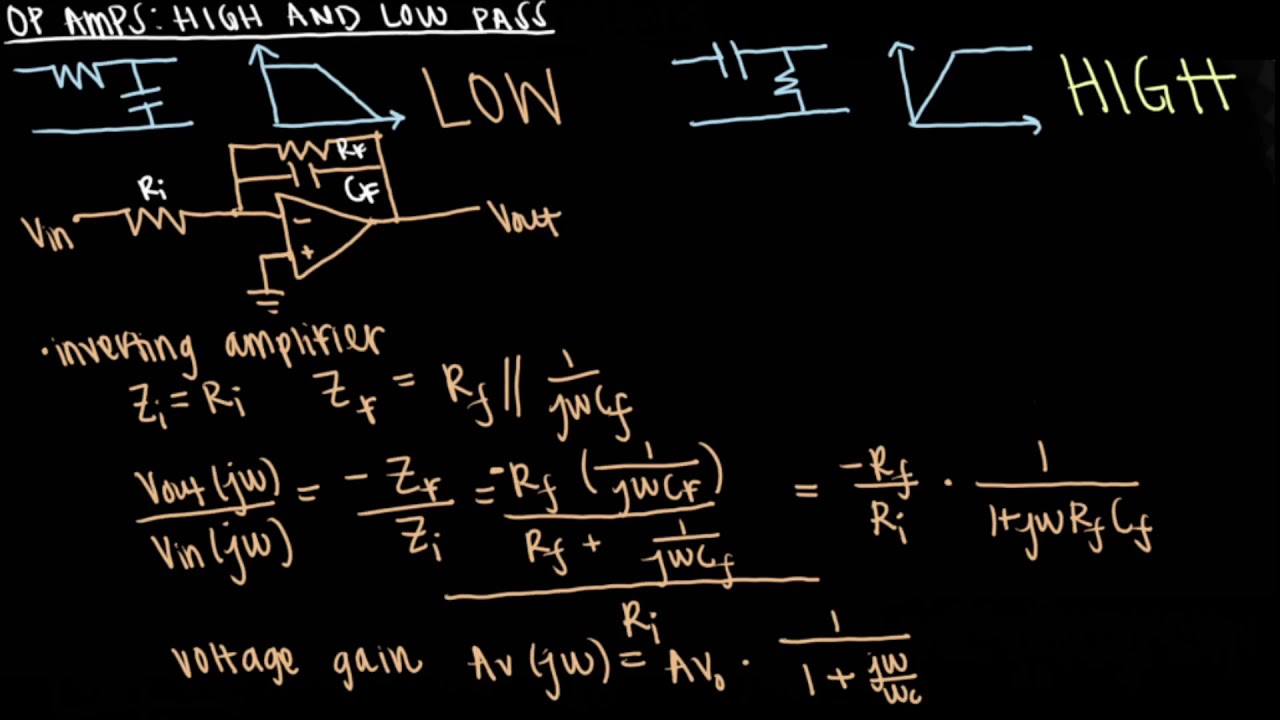 OP AMPS: HIGH AND LOW PASS
LOW
HIGH
Rf
Cf
Ri
Vin
Vout
-
+
·inverting amplifier
Zi = Ri    Zf = Rf || 1/jwCf
Vout(jw)/Vin(jw) = -Zf/Zi = -Rf (1/jwCf) / Rf + 1/jwCf / Ri = -Rf/Ri · 1/1+jwRfCf
voltage gain Av(jw) = Av₀ · 1/1 + jw/wc